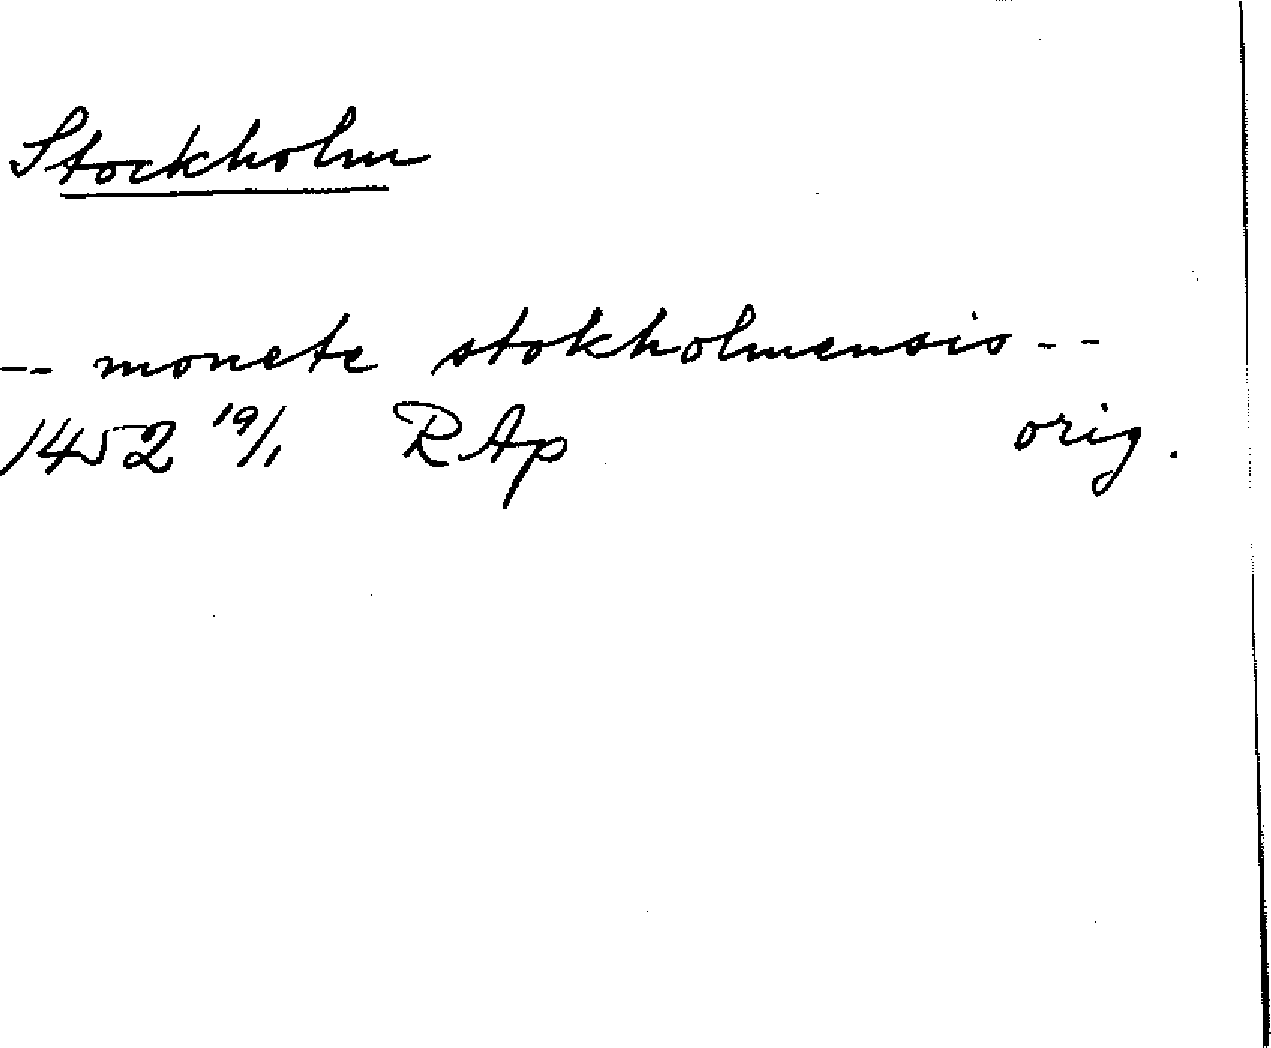 Stockholm
-- monete stokholmensis --
1452 19/1 RAp orig.